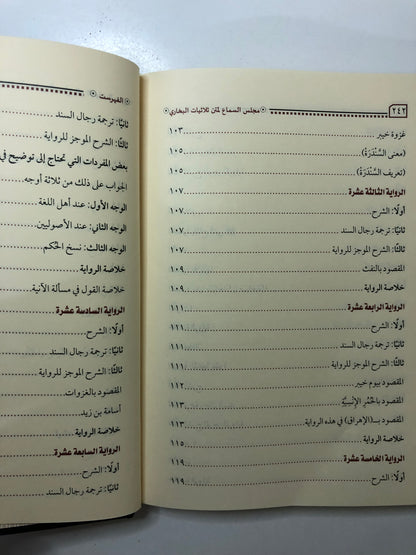 ٢٤٢ مجلس السماع لمتن ثلاثيات البخاري
غزوة خيبر ١٠٣
(معنى السَّنْدَرَةِ) ١٠٥
(تعريف السَّنْدَرَةُ) ١٠٥
الرواية الثالثة عشرة ١٠٧
أولًا: الشرح ١٠٧
ثانيًا: ترجمة رجال السند ١٠٧
ثالثًا: الشرح الموجز للرواية ١٠٧
المقصود بالنفث ١٠٩
خلاصة الرواية ١٠٩
الرواية الرابعة عشرة ١١١
أولًا: الشرح ١٢١
ثانيًا: ترجمة رجال السند ١١١
ثالثًا: الشرح الموجز للرواية ١١١
المقصود بيوم خيبر ١١٢
المقصود بالحُمُر الإِنْسِيَّة ١١٣
المقصود بـ(الإهراق) في هذه الرواية ١١٣
خلاصة الرواية ١١٥
الرواية الخامسة عشرة ١١٩
أولًا: الشرح ١١٩
الفهرست
ثانيًا: ترجمة رجال السند
ثالثًا: الشرح الموجز للرواية
بعض المفردات التي تحتاج إلى توضيح في
الجواب على ذلك من ثلاثة أوجه
الوجه الأول: عند أهل اللغة
الوجه الثاني: عند الأصوليين
الوجه الثالث: نسخ الحكم
خلاصة الرواية
خلاصة القول في مسألة الآنية
الرواية السادسة عشرة
أولًا: الشرح
ثانيًا: ترجمة رجال السند
ثالثًا: الشرح الموجز للرواية
المقصود بالغزوات
أسامة بن زيد
خلاصة الرواية
الرواية السابعة عشرة
أولًا: الشرح
ثانيًا: ترجمة رجال السند